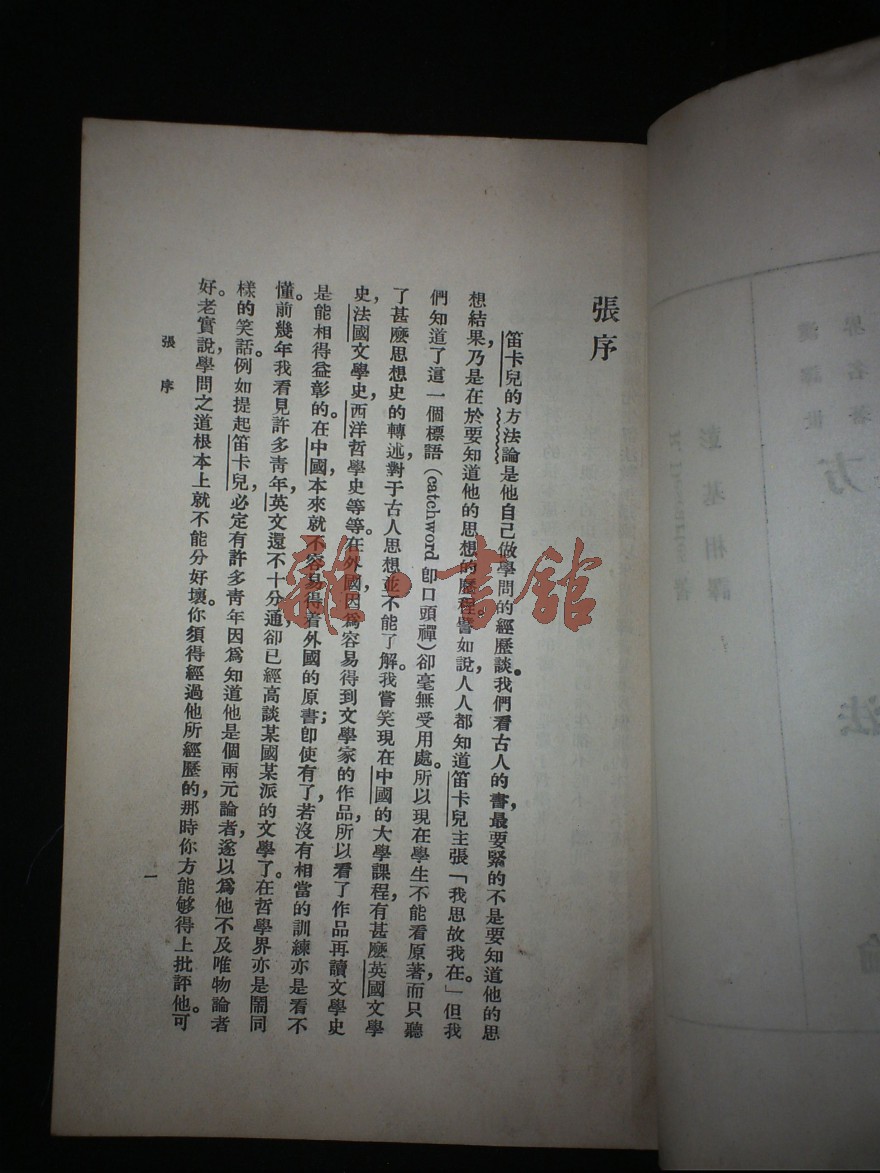 張序
笛卡兒的方法論是他自己做學問的經歷談。我們看古人的書，最要緊的不是要知道他的思
想結果，乃是在於要知道他的思想的歷程。譬如說，人人都知道笛卡兒主張「我思故我在。」但我
們知道了這一個標語（catchword 卽口頭禪）卻毫無受用處。所以現在學生不能看原著，而只聽
了甚麼思想史的轉述，對于古人思想並不能了解。我嘗笑現在中國的大學課程，有甚麼英國文學
史，法國文學史，西洋哲學史等等。在外國，因爲容易得到文學家的作品，所以看了作品再讀文學史
是能相得益彰的。在中國，本來就不容易得着外國的原書；卽使有了，若沒有相當的訓練亦是看不
懂。前幾年我看見許多靑年，英文還不十分通，卻已經高談某國某派的文學了。在哲學界亦是鬧同
樣的笑話。例如提起笛卡兒，必定有許多靑年因爲知道他是個兩元論者，遂以爲他不及唯物論者
好。老實說，學問之道根本上就不能分好壞。你須得經過他所經歷的，那時你方能够得上批評他。可
張序
一
彭基相譯
方
法
論
書館